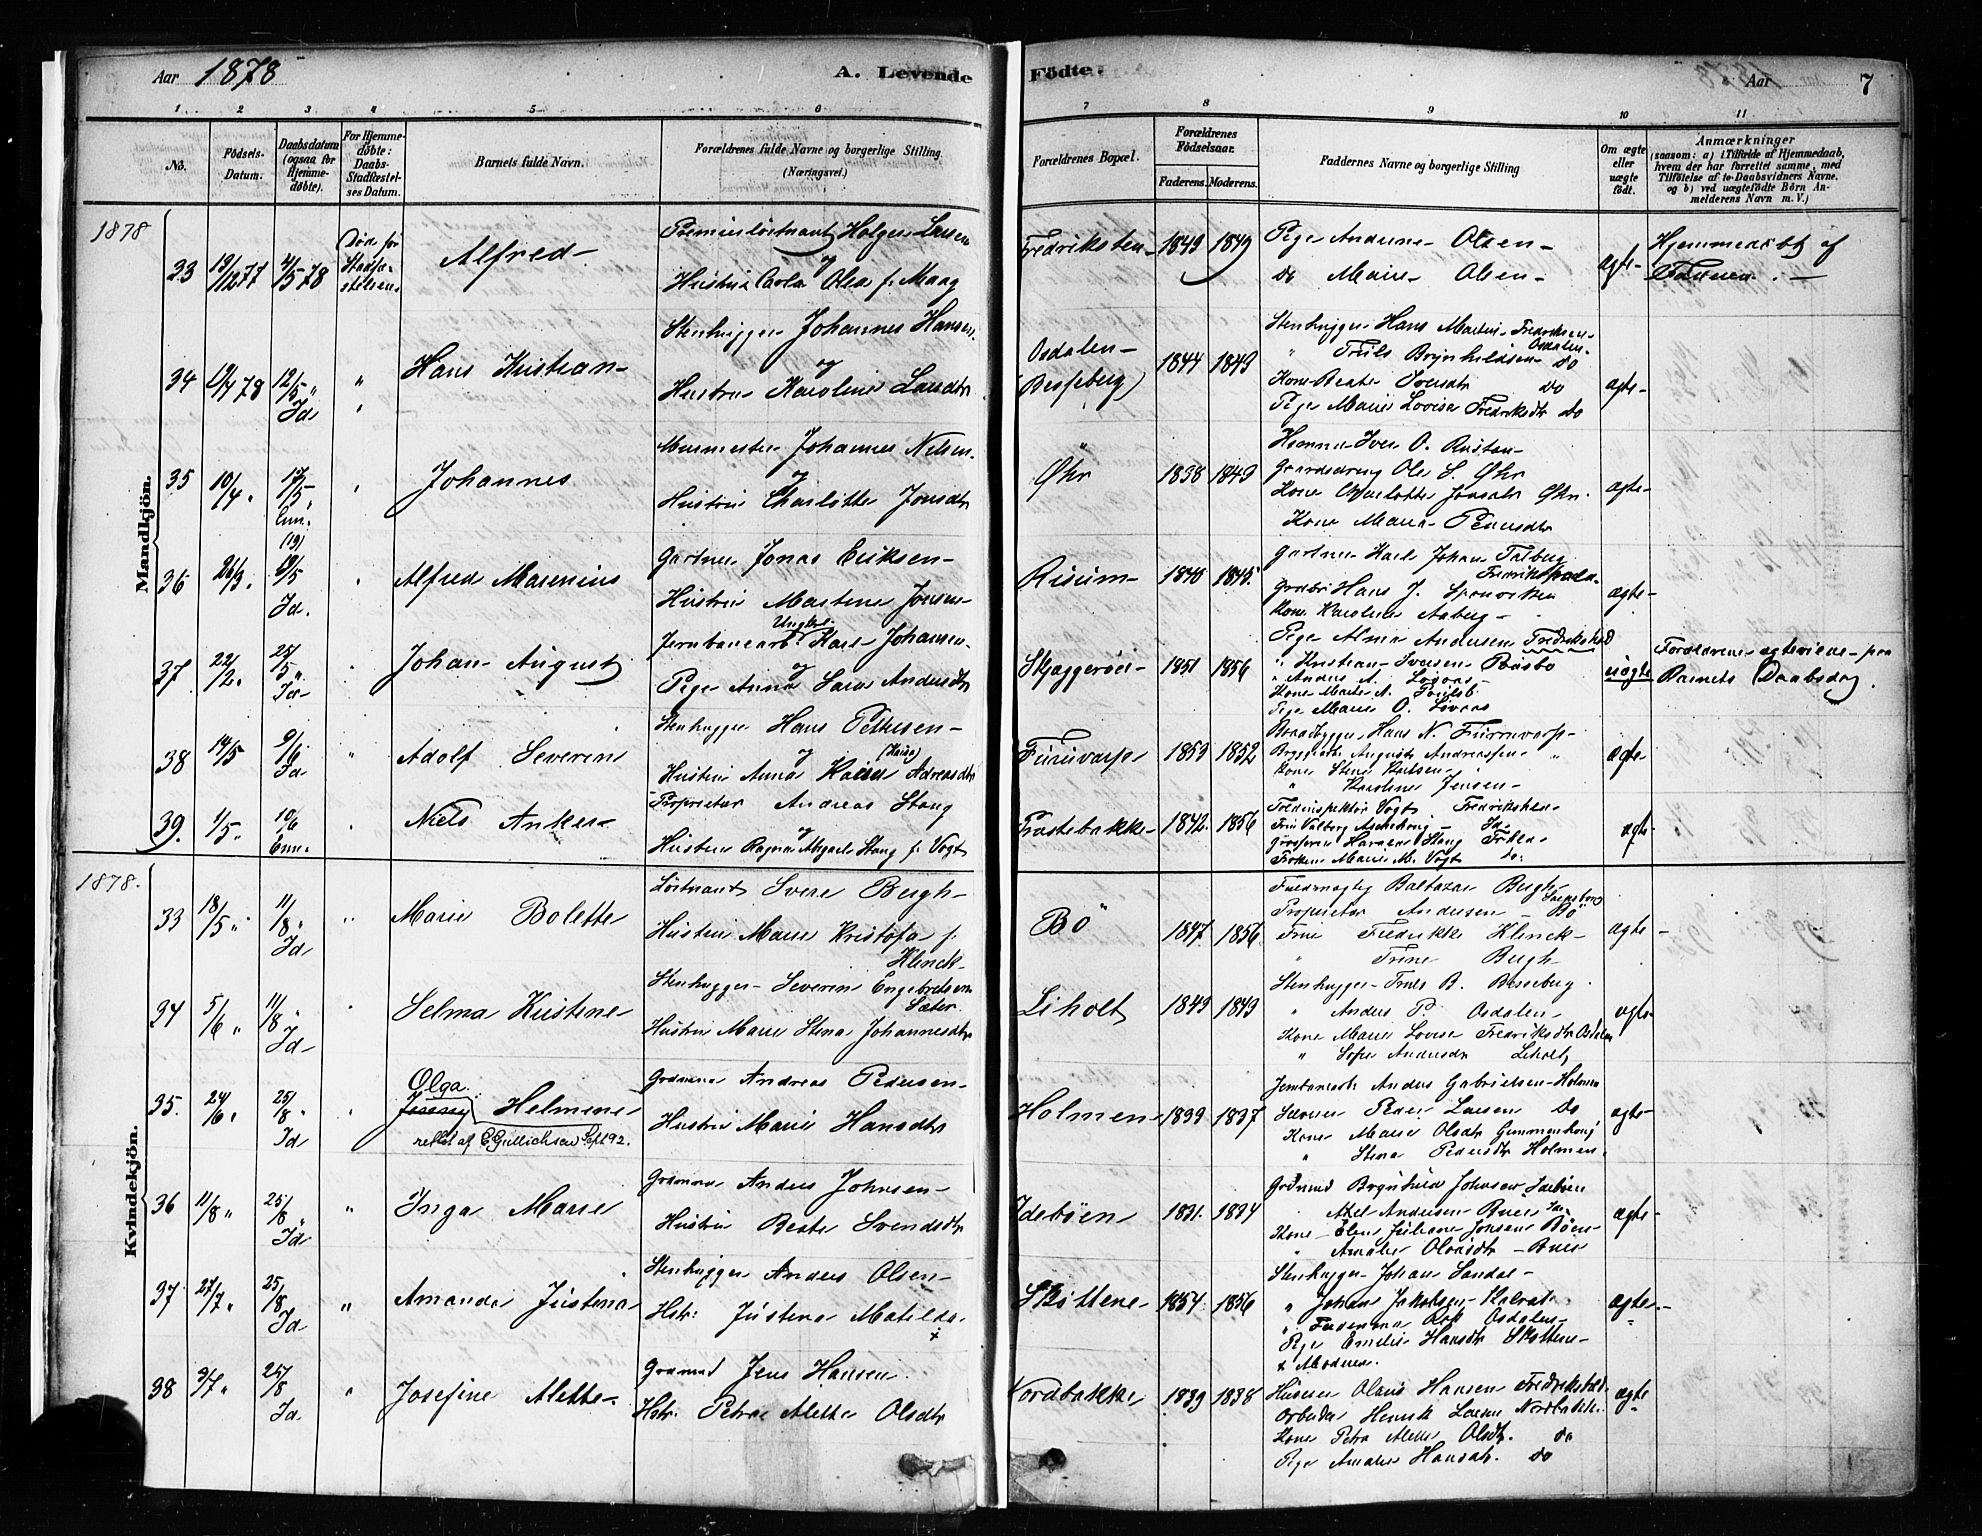 Aar 1878
A. Levende Fødte.
Aar
7
1 2 3 4 5 6 7 8 9 10 11
No.
Födsels-Datum.
Daabsdatum (ogsaa for Hjemmedøbte).
For Hjemmedøbte: Daabs-Stadfæstelses Datum.
Barnets fulde Navn.
Forældrenes fulde Navne og borgerlige Stilling. (Næringsvei.)
Forældrenes Bopæl.
Forældrenes Födselsaar.
Faderens. Moderens.
Faddernes Navne og borgerlige Stilling
Om ægte eller uægte født.
Anmærkninger
(saasom: a) i Tilfælde af Hjemmedaab, hvem der har forrettet samme, med Tilföielse af to Daabsvidners Navne, og b) ved uægtefødte Börn Anmelderens Navn m. V.)
Mandkjön.
1878
33 19/12 77 4/5 78 Døde før Stadfæstelsen
Alfred
Premierløitnant Holger Larsen
og
Hustru Carla Olea f. Maag
Fredriksten 1849 1849
Pige Andrine Olsen
do Marie Olsen
ægte
Hjemmedøbt af
34 19/4 78 12/5 " Id
Hans Kristian
Stenhugger Johannes Hansen
og
Hustru Karoline Larsdtr
Osdalen (Besseberg) 1844 1849
Stenhugger Hans Martin Fredriksen Osdalen
" Truls Brynhildsen do
Kone Beate Iversdtr do
Pige Marie Lovise Fredriksdtr do
ægte
35 10/4 " 17/5 Enn.
Johannes
Murmester Johannes Nilsen
og
Hustru Charlotte Jonsdtr
Øhr 1838 1849
Iver O. Rustan
Ole S. Øhr
Kone Charlotte Jonsdtr Øhr.
Kone Maria Pedersdtr
ægte
36 26/3 " (19) 19/5 Id.
Alfred Marenius
Gartner Jonas Eriksen
Hustru Martene Jensen
Risum 1840 1845
Gartner Karl Johan Talberg
Hans J.
Kone Karoline Aaberg
ægte
37 22/2 " 25/5 " Id
Johan August
Jernbanearb. Ungkl. Karl Johansen
og
Pige Anna Sara Andersdtr
Skjaggerøei 1851 1856
Pige Alma Andersen Fredrikshald
" Kristian Iversen Risbo
" Anders A.
Kone Marte A.
Pige Marie O.
uægte
Forældrene ægteviede paa
Barnets Daabsdag.
38 14/5 9/6 Id
Adolf Severin
Stenhugger Hans Pettersen
og (Kaisa)
Hustru Anna Kaisa Andreasdtr
Furuvarp 1853 1852
Hans N. Furuvarp
August Andreassen "
Kone Stine Karlsen
" Karoline Jensen
ægte
39. 1/5. 10/6 Enn.
Niels Anker
Proprietær Andreas Stang
og
Hustru Ragna Abigael Stang f. Vogt
Prestebakke 1842. 1856
Vogt Fredrikshald
Stang
Frøken Marie M. Vogt do.
ægte
Kvindekjön.
1878.
33 18/5 " 11/8 " Id
Marie Bolette
Løitnant Svere Bergh
Hustru Marie Kristofa f. Klenck
Bö 1847 1856
Fuldmægtig Baltazar Bergh Sarpsborg
Proprietær Andersen Bö
Frue Fredrikke Klenck
" Trine Bergh
ægte
34 5/6 " 11/8 " Id
Selma Kristine
Stenhugger Severin Engebretsen Sæter
Hustru Marie Stena Johannesdtr
Liholt 1849 1849
Stenhugger Truls B. Besseberg
" Anders P. Osdalen
Kone Marie Lovise Fredriksdtr Osdalen
" Sofie Andersdtr Liholt
ægte
35. 24/6 " 25/8 " Id
Olga Helmine
rettet af E. Gullichsen Sept 92.
Grdmand Andreas Pedersen
Hustru Marie Hansdtr
Holmen 1833 1837
Jernbanearb. Anders Gabrielsen Holmen
Peder Larsen do
Kone Marie Olsdtr
" Stena Pedersdtr Holmen.
ægte
36 11/8 " 25/8 " Id
Inga Marie
Grdmand Anders Johnsen
Hustru Beate Svendsdtr
Idebøen 1831. 1834
Grdmand Brynhild Johnsen Idebøen
" Axel Andersen Buer
Kone Elen Juliane Jonsen Bøen
" Amalie Olausdtr Buer
ægte
37 27/7 " 25/8 " Id
Amanda Justina
Stenhugger Anders Olsen
Hstr: Justina Matilda
Skottene 1854 1856
Stenhugger Johan Sandal
" Johan Jakobsen
Osdalen
Pige Emilie Hansdtr Skottene
& Moderen.
ægte
38 9/7 " 25/8 Id
Josefine Alette
Grdmand Jens Hansen
Hstr: Petra Alette Olsdtr
Nordbakke 1839 1838
Husmand Olaus Hansen Fredrikshald
Arbeider Henrik Larsen Nordbakke
Kone Petra Alette Olsdtr. do
Pige Amalie Hansdtr. do
ægte